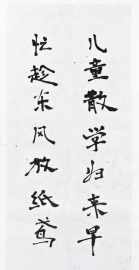 儿童散学归来早
忙趁东风放纸鸢